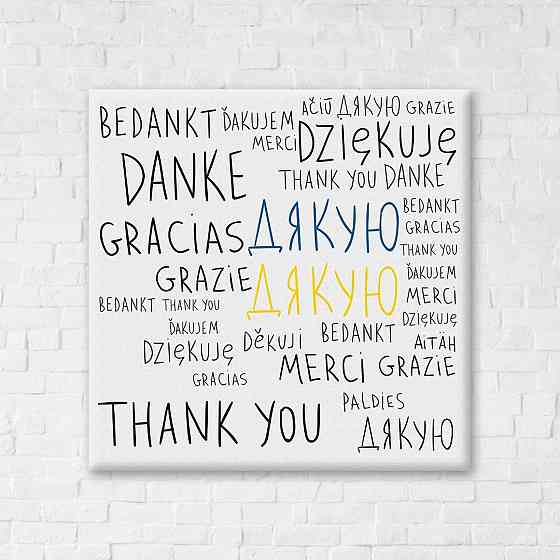 BEDANKT ĎAKUJEM AČIŪ ДЯКУЮ GRAZIE
MERCI DZIĘKUJĘ
DANKE THANK YOU DANKE
GRACIAS ДЯКУЮ BEDANKT
GRACIAS
THANK YOU
GRAZIE ДЯКУЮ ĎAKUJEM
MERCI
BEDANKT THANK YOU DZIĘKUJĘ
ĎAKUJEM DĚKUJI BEDANKT AITÄH
DZIĘKUJĘ MERCI GRAZIE
GRACIAS
THANK YOU PALDIES
ДЯКУЮ